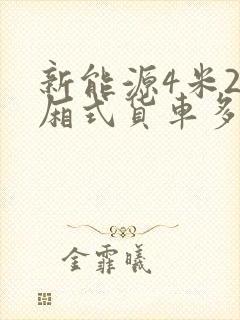 新能源4米2
厢式货车多
金霏曦